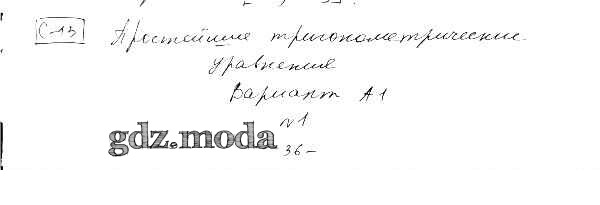 С-13 Простейшие тригонометрические
уравнения
Вариант А1
№1
gdz.moda
36-